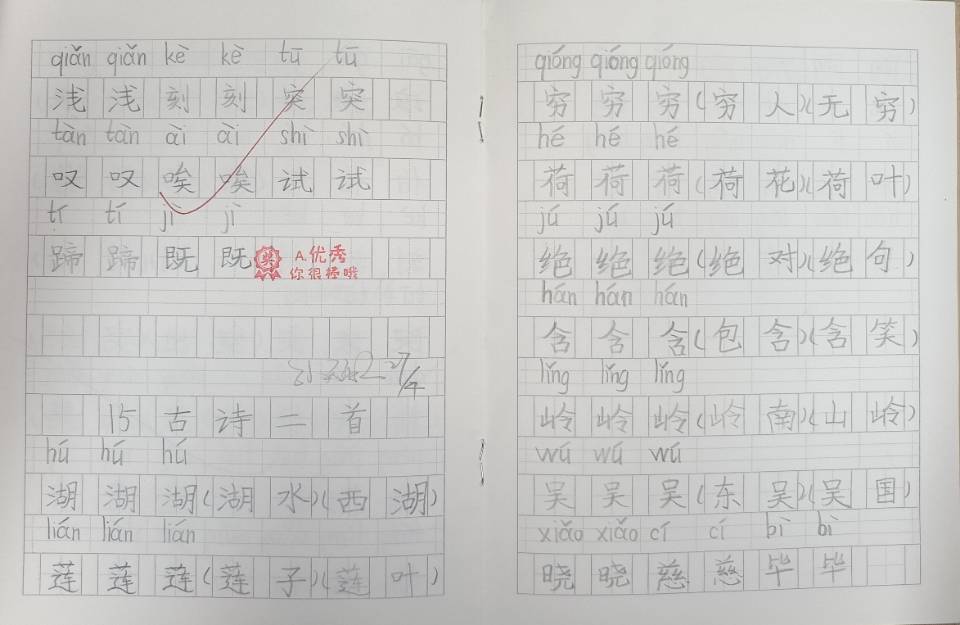 qiǎn qiǎn kè kè tū tū
浅 浅 刻 刻 突 突
tàn tàn āi āi shì shì
叹 叹 唉 唉 试 试
tí tí jì jì
蹄 蹄 既 既
A.优秀
你很棒哦
27/4
15 古 诗 二 首
hú hú hú
湖 湖 湖(湖 水)(西 湖)
lián lián lián
莲 莲 莲(莲 子)(莲 叶)
qióng qióng qióng
穷 穷 穷(穷 人)(无 穷)
hé hé hé
荷 荷 荷(荷 花)(荷 叶)
jú jú jú
绝 绝 绝(绝 对)(绝 句)
hán hán hán
含 含 含(包 含)(含 笑)
lǐng lǐng lǐng
岭 岭 岭(岭 南)(山 岭)
wú wú wú
吴 吴 吴(东 吴)(吴 国)
xiǎo xiǎo cí cí bì bì
晓 晓 慈 慈 毕 毕